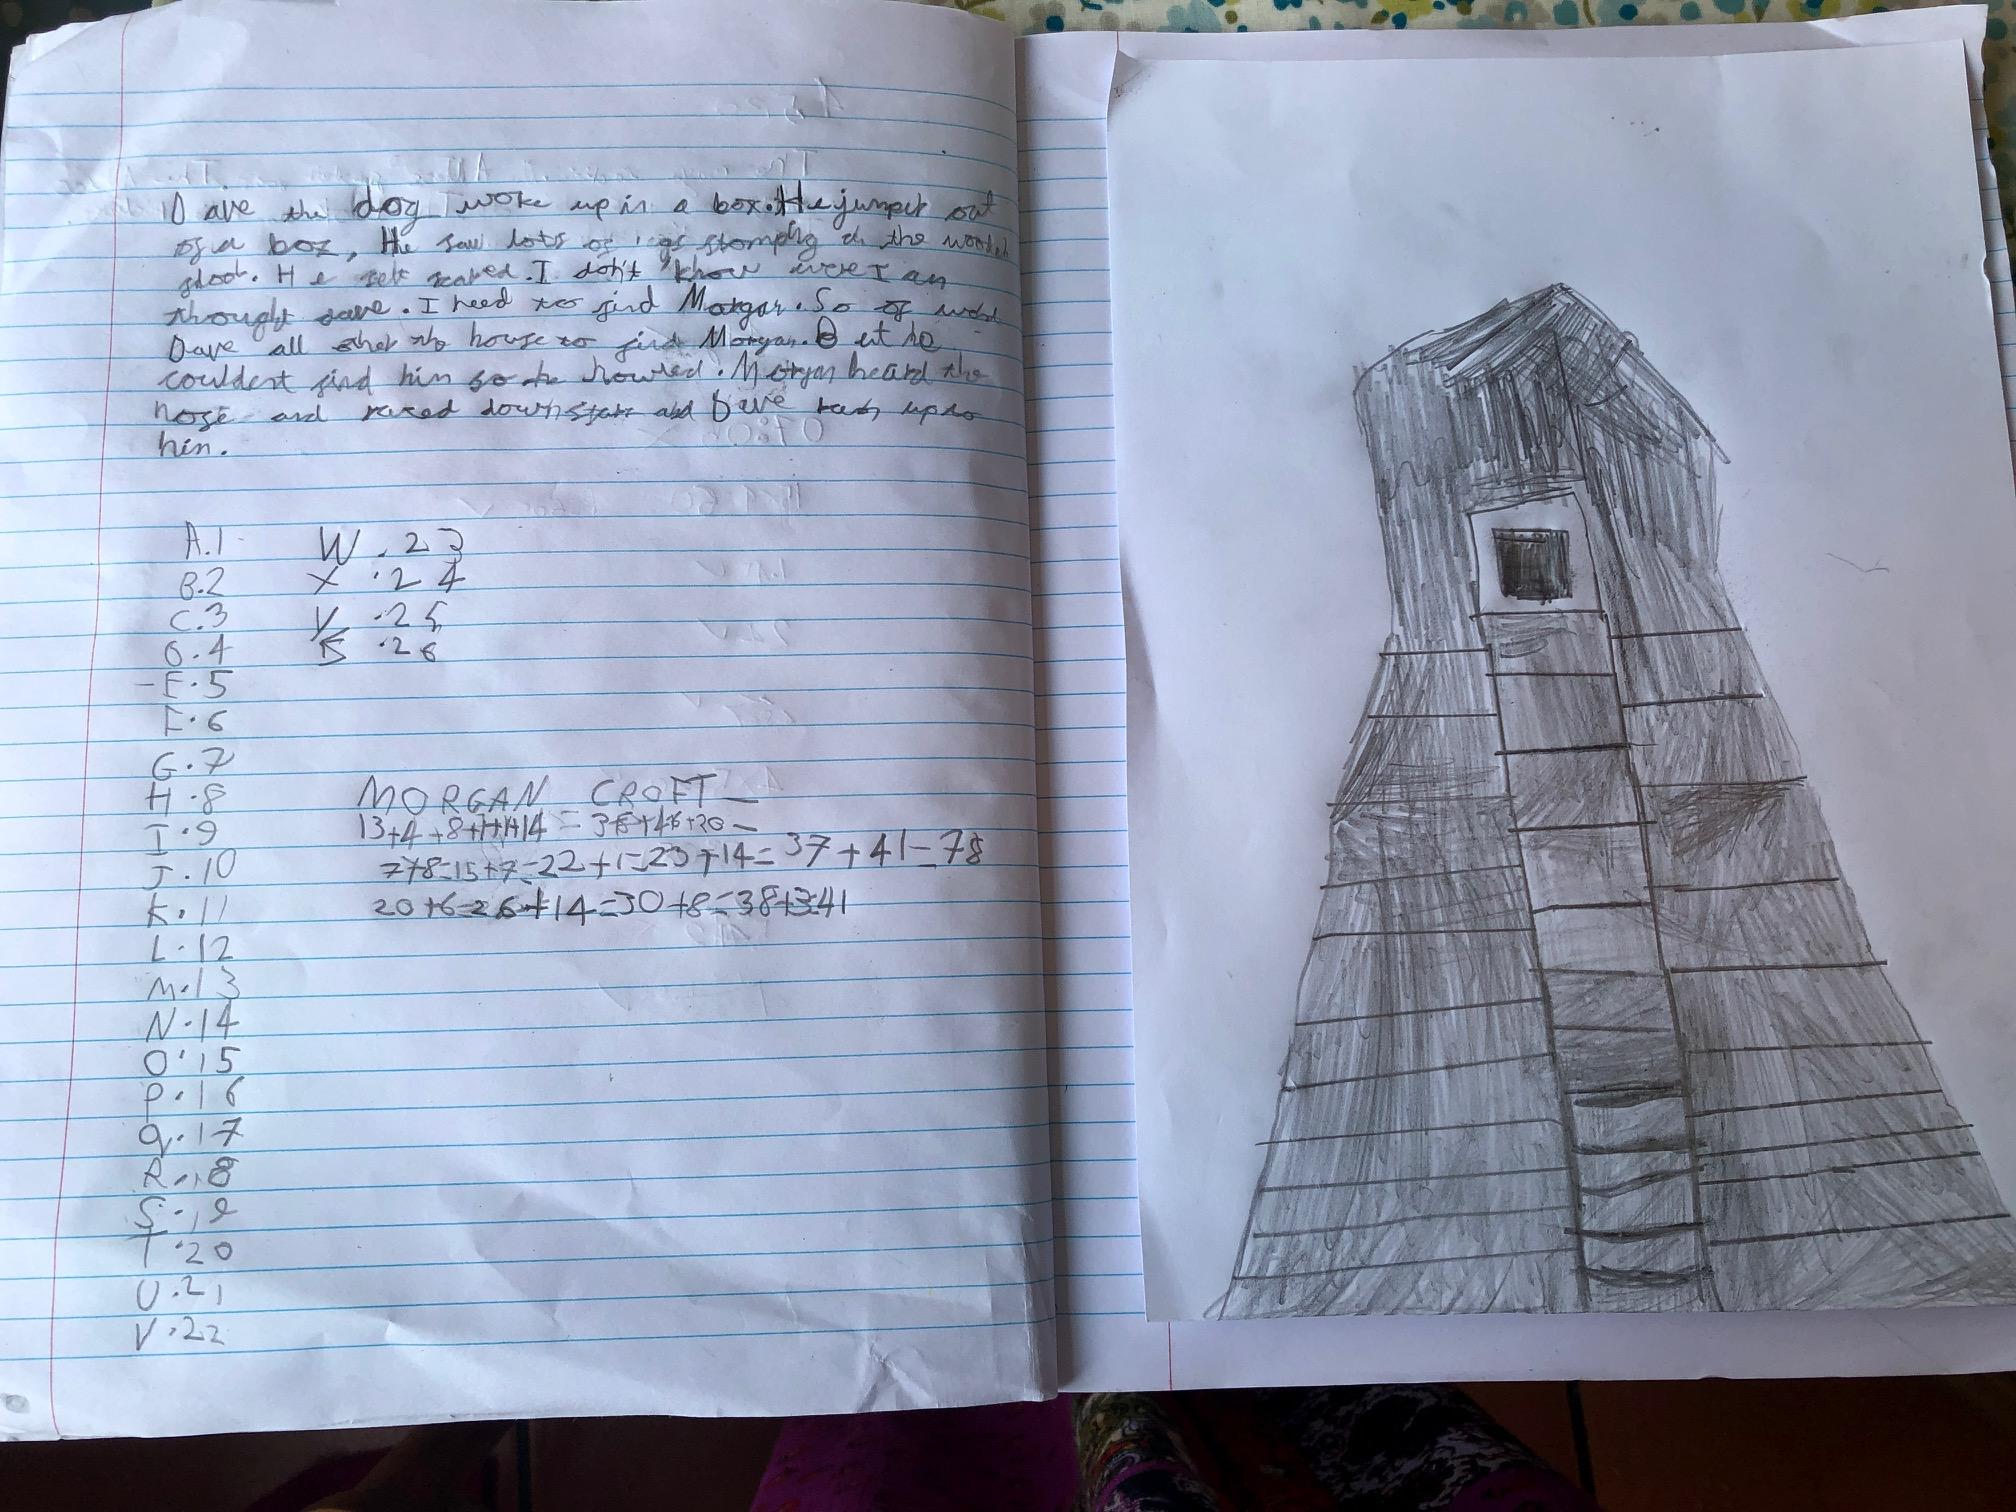 Dave the dog woke up in a box. He jumpet out
of a box, He saw lots of stomping the wooden
floor. He felt scared. I don't know were I am
thought Dave. I need to find Morgan. So of went
Dave all other the house to find Morgan. But he
couldent find him so he howled. Morgan heard the
nose and raced downstars and Dave ran up to
him.
A.1 W.23
B.2 X.24
C.3 Y.25
.4 .26
E.5
F.6
G.7
H.8
I.9
J.10
K.11
L.12
M.13
N.14
O.15
P.16
q.17
R.18
S.19
T.20
U.21
V.22
MORGAN CROFT
13+4+8+
7+8=15+7=22+1=23+14=37+41=78
20+6=26+14=30+8=38+3=41